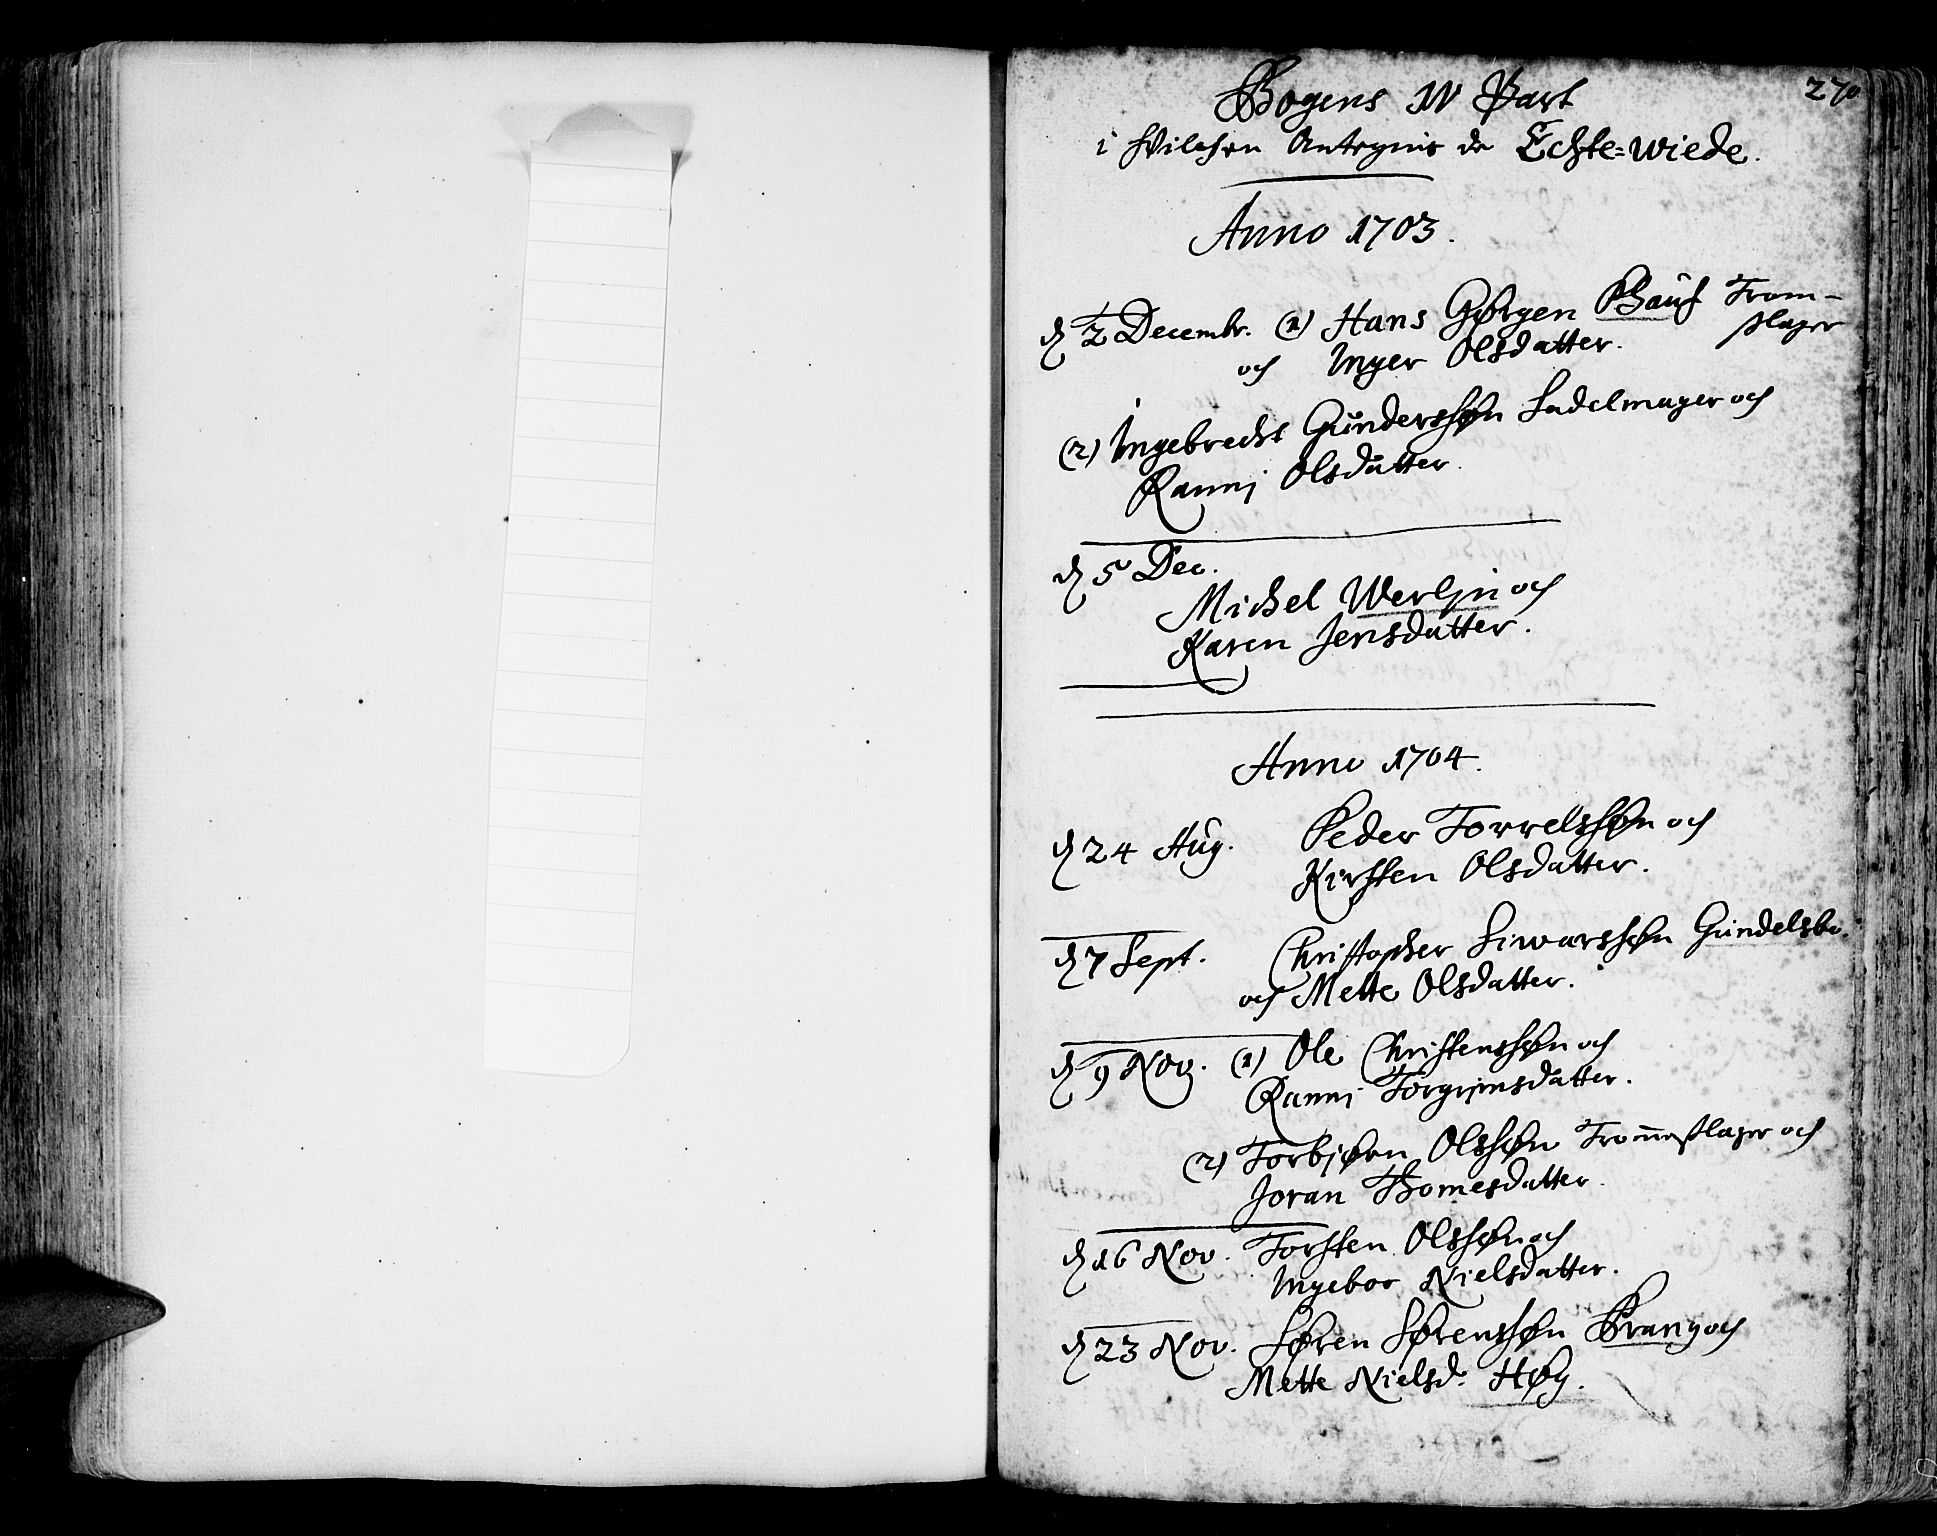 270
Bogens IV Part
i hvilchen Antegnis de Echte=wiede.
Anno 1703.
d 2 Decembr. (1) Hans Gørgen Bauf Trom-
slager
och Inger Olsdatter.
(2) Ingebrecht Gunderssøn Sadelmager och
Ranni Olsdatter.
d 5 Dec.
Michel Werljn och
Karen Jensdatter.
Anno 1704.
d 24 Aug. Peder Torrelssøn och
Kirsten Olsdatter.
d 7 Sept. Christopher Siwarssøn Gundelsbo.
och Mette Olsdatter.
d 9 Nov. (1) Ole Christenssøn och
Ranni Torgrimsdatter.
(2) Torbjørn Olssøn Trom̄eslager och
Joran Thomesdatter.
d 16 Nov. Torsten Olssøn och
Ingebor Nielsdatter.
d 23 Nov. Søren Sørenssøn Prang och
Mette Nielsd: Høg.